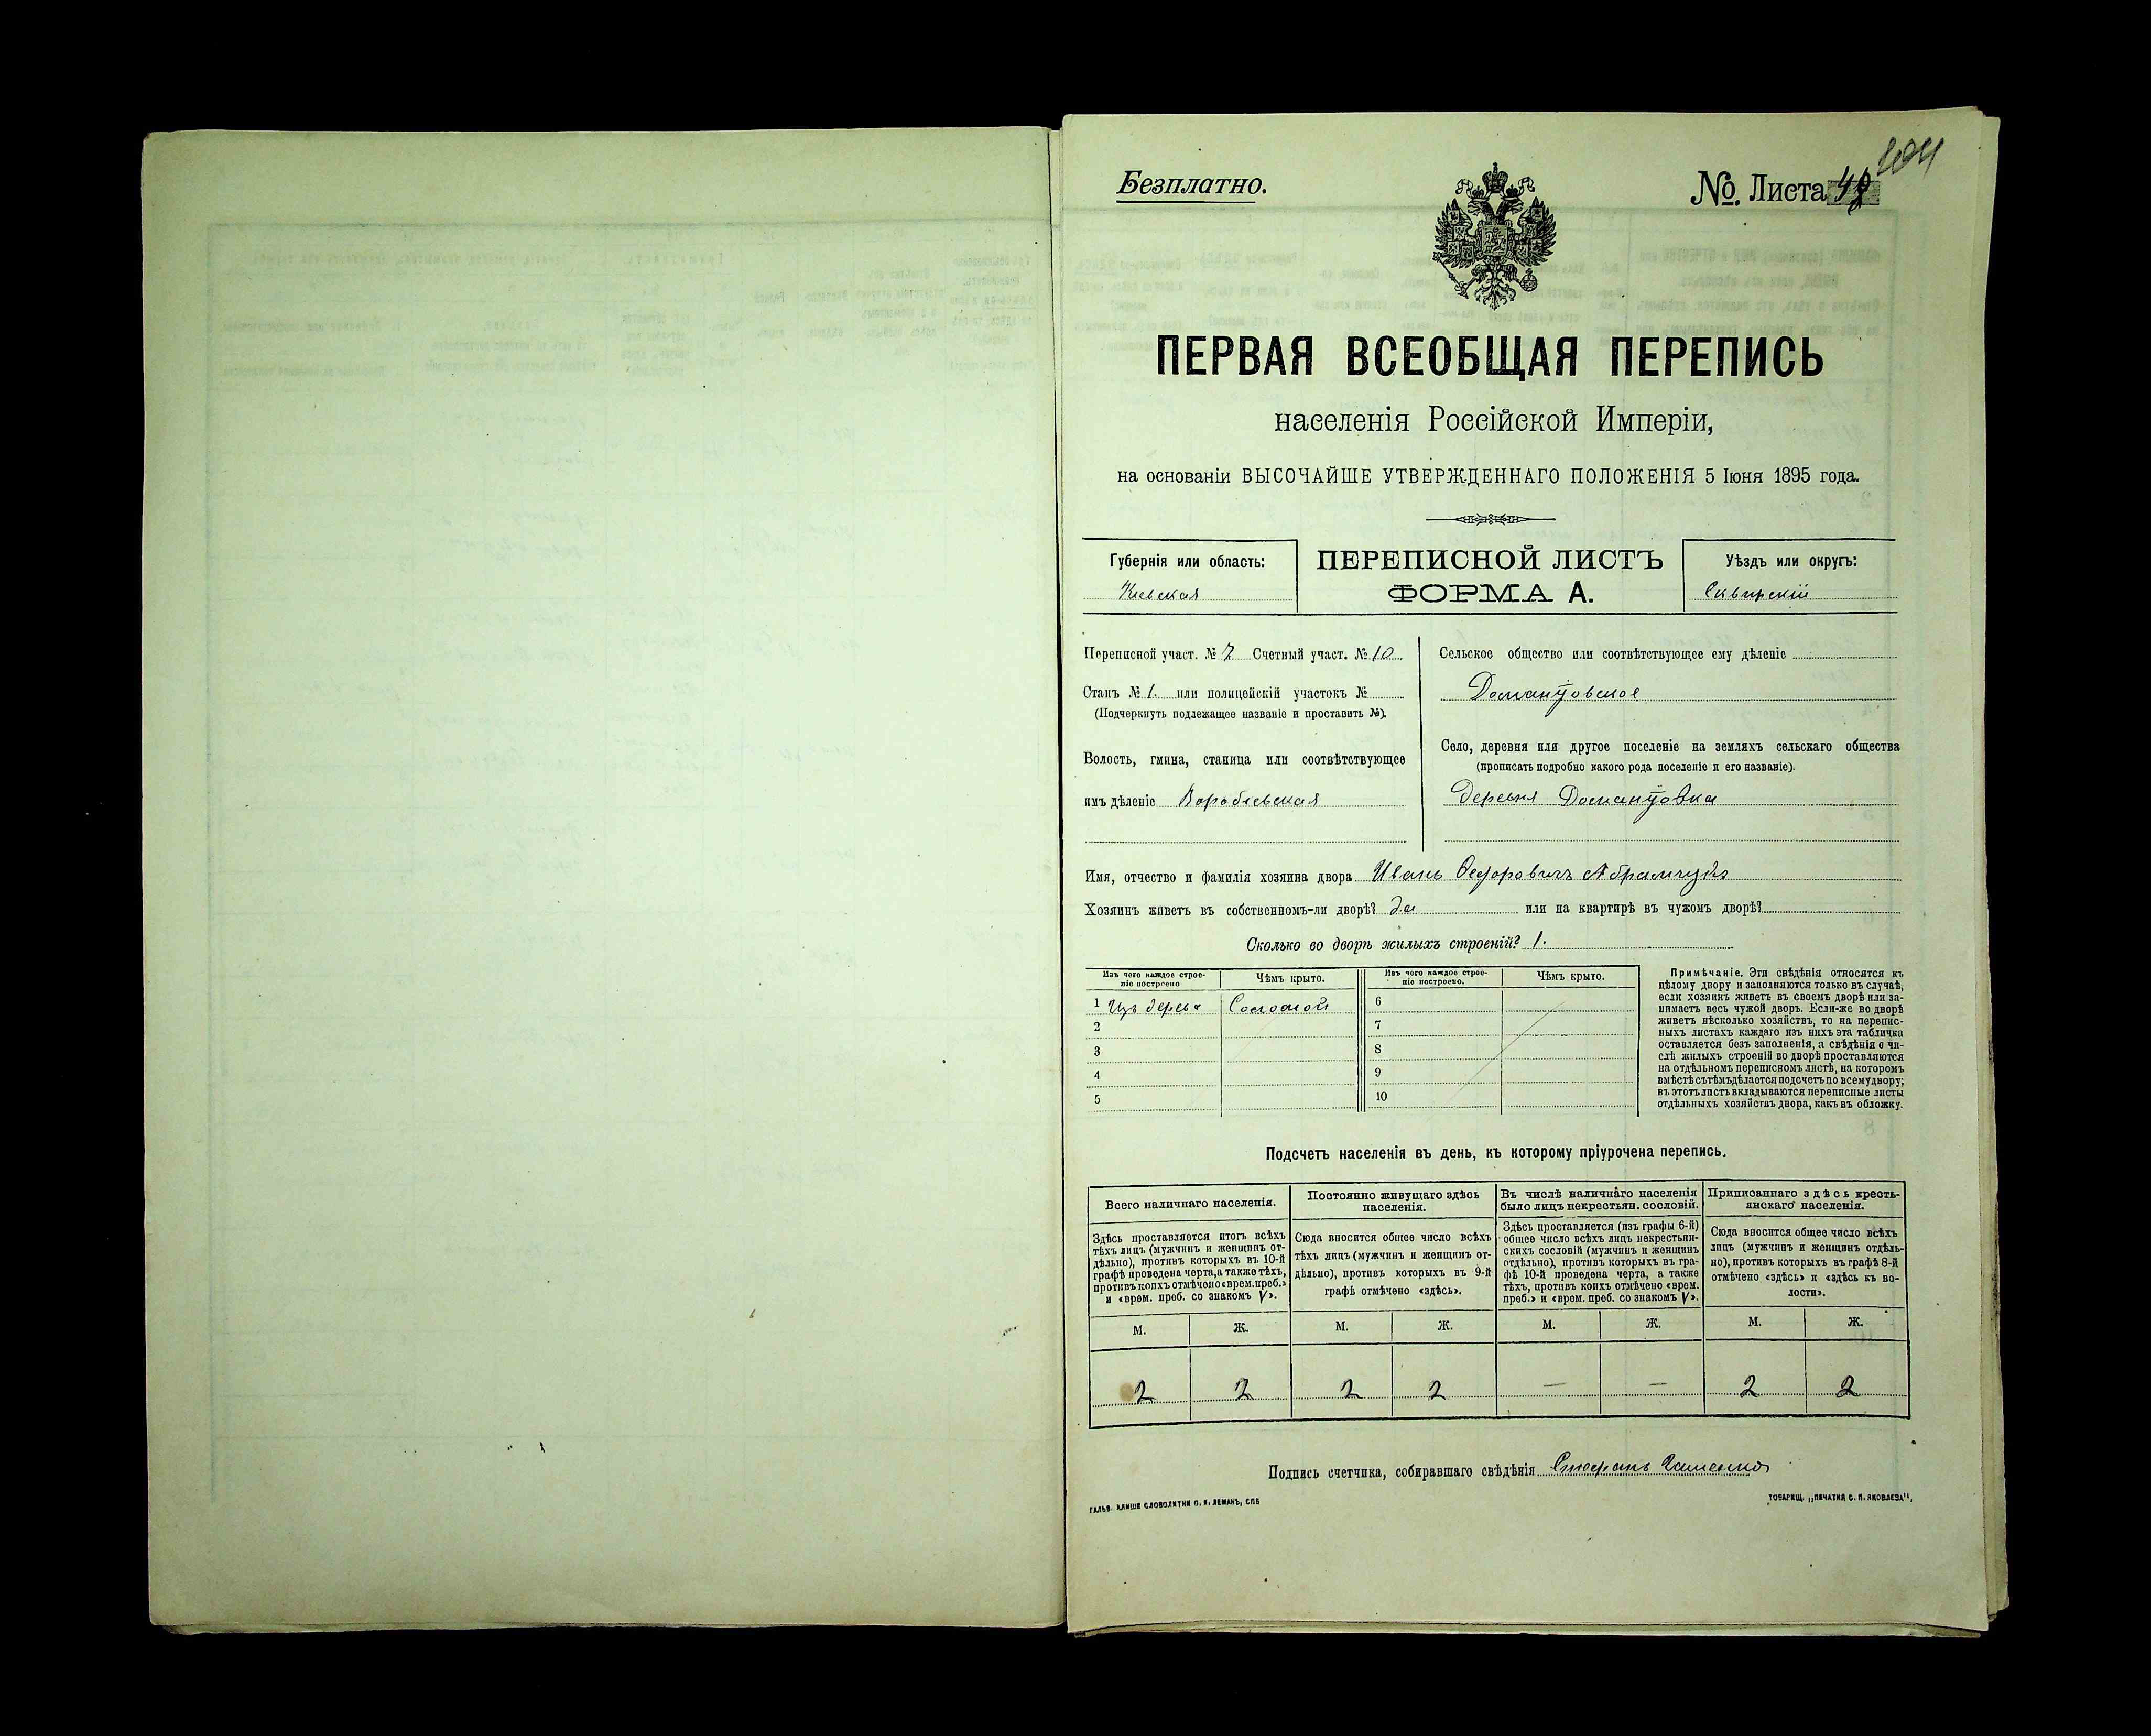 Безплатно.
№. Листа 48
104
ПЕРВАЯ ВСЕОБЩАЯ ПЕРЕПИСЬ
населенія Россійской Имперіи,
на основаніи ВЫСОЧАЙШЕ УТВЕРЖДЕННАГО ПОЛОЖЕНІЯ 5 Іюня 1895 года.
Губернія или область:
Кіевская
ПЕРЕПИСНОЙ ЛИСТЪ
ФОРМА А.
Уѣздъ или округъ:
Сквирскій
Переписной участ. № 7 Счетный участ. № 10
Станъ № 1. или полицейскій участокъ №
(Подчеркнуть подлежащее названіе и проставить №).
Волость, гмина, станица или соотвѣтствующее
имъ дѣленіе Воробіевская
Сельское общество или соотвѣтствующее ему дѣленіе
Домантовское
Село, деревня или другое поселеніе на земляхъ сельскаго общества
(прописать подробно какого рода поселеніе и его названіе).
деревня Домантовка
Имя, отчество и фамилія хозяина двора Иванъ Федоровичъ Абрамчукъ
Хозяинъ живетъ въ собственномъ-ли дворѣ? да или на квартирѣ въ чужомъ дворѣ?
Сколько во дворѣ жилыхъ строеній? 1.
Изъ чего каждое строе-
ніе построено
Чѣмъ крыто.
Изъ чего каждое строе-
ніе построено.
Чѣмъ крыто.
1 Изъ дерева Соломой
2
3
4
5
6
7
8
9
10
Примѣчаніе. Эти свѣдѣнія относятся къ
цѣлому двору и заполняются только въ случаѣ,
если хозяинъ живетъ въ своемъ дворѣ или за-
нимаетъ весь чужой дворъ. Если-же во дворѣ
живетъ нѣсколько хозяйствъ, то на перепис-
ныхъ листахъ каждаго изъ нихъ эта табличка
оставляется безъ заполненія, а свѣдѣнія о чи-
слѣ жилыхъ строеній во дворѣ проставляются
на отдѣльномъ переписномъ листѣ, на которомъ
вмѣстѣ съ тѣмъ дѣлается подсчетъ по всему двору;
въ этотъ листъ вкладываются переписные листы
отдѣльныхъ хозяйствъ двора, какъ въ обложку.
Подсчетъ населенія въ день, къ которому пріурочена перепись.
Всего наличнаго населенія.
Здѣсь проставляется итогъ всѣхъ
тѣхъ лицъ (мужчинъ и женщинъ от-
дѣльно), противъ которыхъ въ 10-й
графѣ проведена черта, а также тѣхъ,
противъ коихъ отмѣчено «врем. преб.»
и «врем. преб. со знакомъ V».
Постоянно живущаго здѣсь
населенія.
Сюда вносится общее число всѣхъ
тѣхъ лицъ (мужчинъ и женщинъ от-
дѣльно), противъ которыхъ въ 9-й
графѣ отмѣчено «здѣсь».
Въ числѣ наличнаго населенія
было лицъ некрестьян. сословій.
Здѣсь проставляется (изъ графы 6-й)
общее число всѣхъ лицъ некрестьян-
скихъ сословій (мужчинъ и женщинъ
отдѣльно), противъ которыхъ въ гра-
фѣ 10-й проведена черта, а также
тѣхъ, противъ коихъ отмѣчено «врем.
преб.» и «врем. преб. со знакомъ V».
Приписаннаго здѣсь кресть-
янскаго населенія.
Сюда вносится общее число всѣхъ
лицъ (мужчинъ и женщинъ отдѣль-
но), противъ которыхъ въ графѣ 8-й
отмѣчено «здѣсь» и «здѣсь къ во-
лости».
М. Ж. М. Ж. М. Ж. М. Ж.
2 2 2 2 — — 2 2
Подпись счетчика, собиравшаго свѣдѣнія Стефанъ
ГАЛЬВ. КЛИШЕ СЛОВОЛИТНИ О. И. ЛЕМАНЪ, СПБ
ТОВАРИЩ. „ПЕЧАТНЯ С. П. ЯКОВЛЕВА",